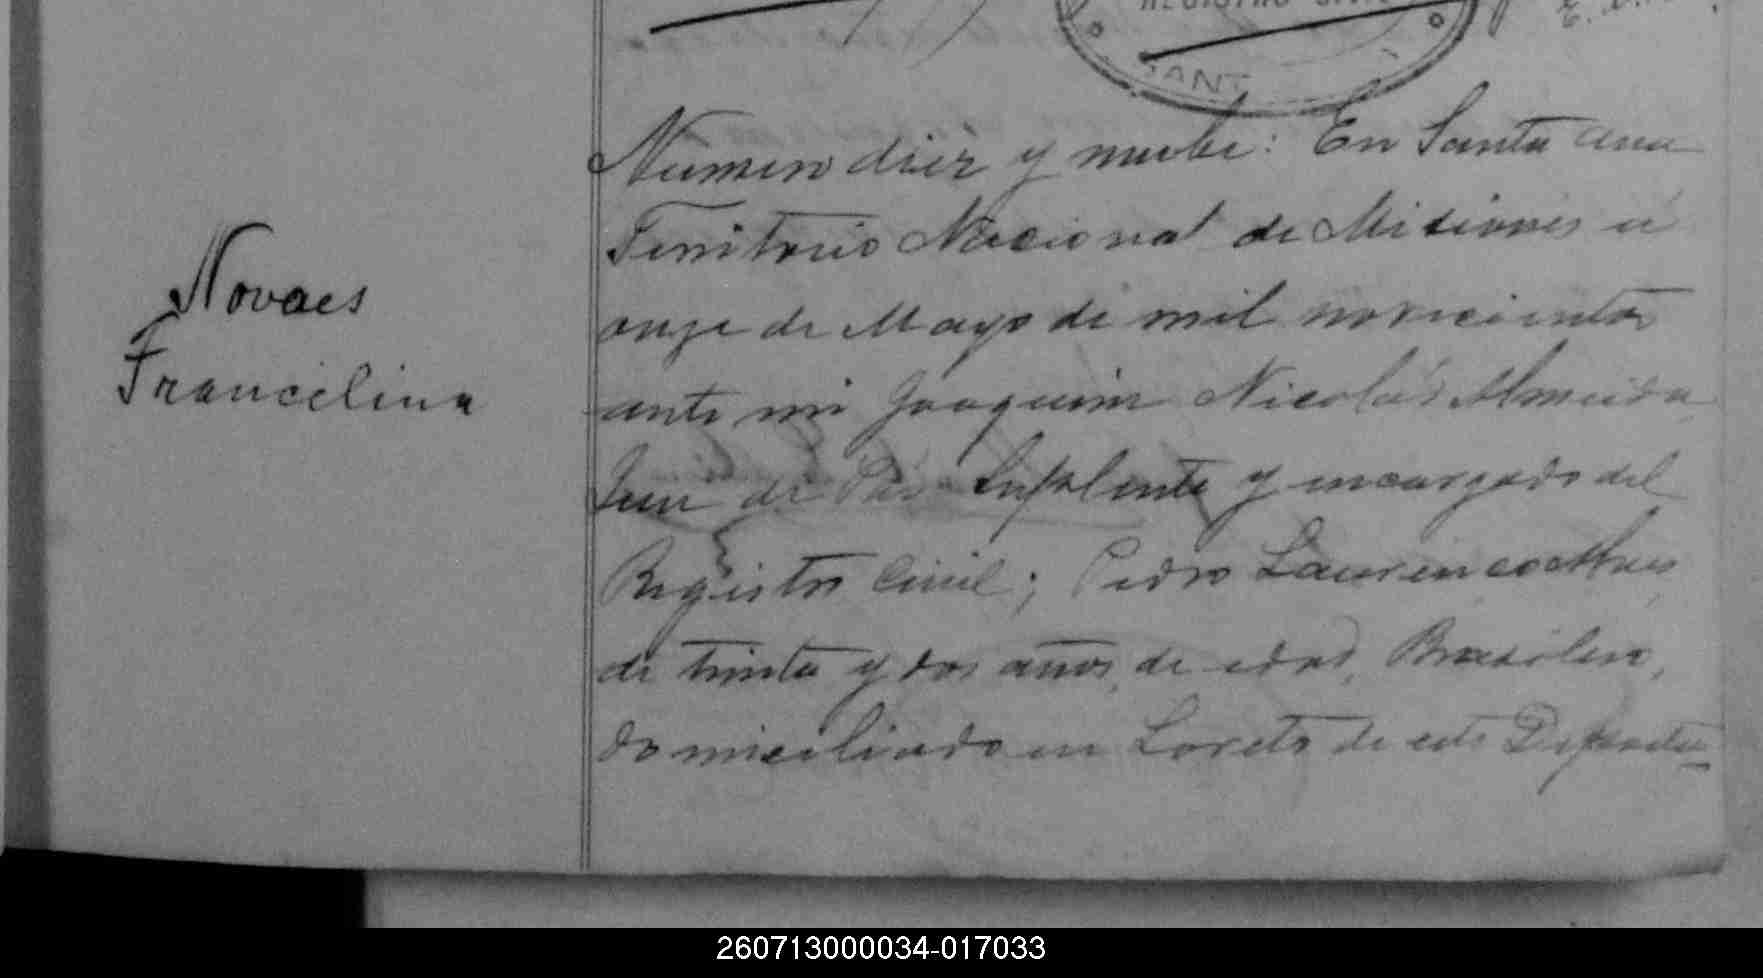 REGISTRO CIVIL
SANT
Numero diez y nuebe: En Santa Ana
Territorio Nacional de Misiones a
onze de Mayo de mil novecientos
ante mi Joaquim Nicolás Almeida
Juez de Paz Suplente y encargado del
Registro Civil; Pedro Laurenco Alves,
de trinta y dos años de edad, Brasilero,
domiciliado en Loreto de este Departa-
Novaes
Francelina
260713000034-017033